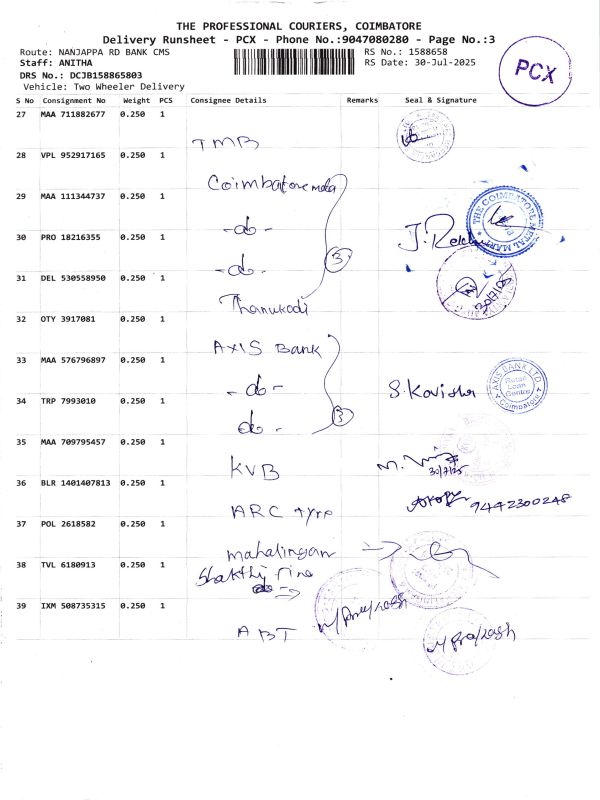 THE PROFESSIONAL COURIERS, COIMBATORE
Delivery Runsheet - PCX - Phone No.:9047080280 - Page No.:3
Route: NANJAPPA RD BANK CMS RS No.: 1588658
Staff: ANITHA RS Date: 30-Jul-2025
DRS No.: DCJB158865803
Vehicle: Two Wheeler Delivery
PCX
S No Consignment No Weight PCS Consignee Details Remarks Seal & Signature
27 MAA 711882677 0.250 1
TMB
28 VPL 952917165 0.250 1
Coimbatore
29 MAA 111344737 0.250 1
-do-
THE COIMBATORE METAL MART
30 PRO 18216355 0.250 1
-do- 3
31 DEL 530558950 0.250 1
Thanukodi
32 OTY 3917081 0.250 1
AXIS Bank
33 MAA 576796897 0.250 1
-do- S. Kavisha
AXIS BANK LTD
Retail
Loan
Center
Coimbatore
34 TRP 7993010 0.250 1
do - 3
35 MAA 709795457 0.250 1
KVB
30/7/25
36 BLR 1401407813 0.250 1
ARC tyre 9442300248
37 POL 2618582 0.250 1
mahalingam
38 TVL 6180913 0.250 1
Shakthi
39 IXM 508735315 0.250 1
ABT